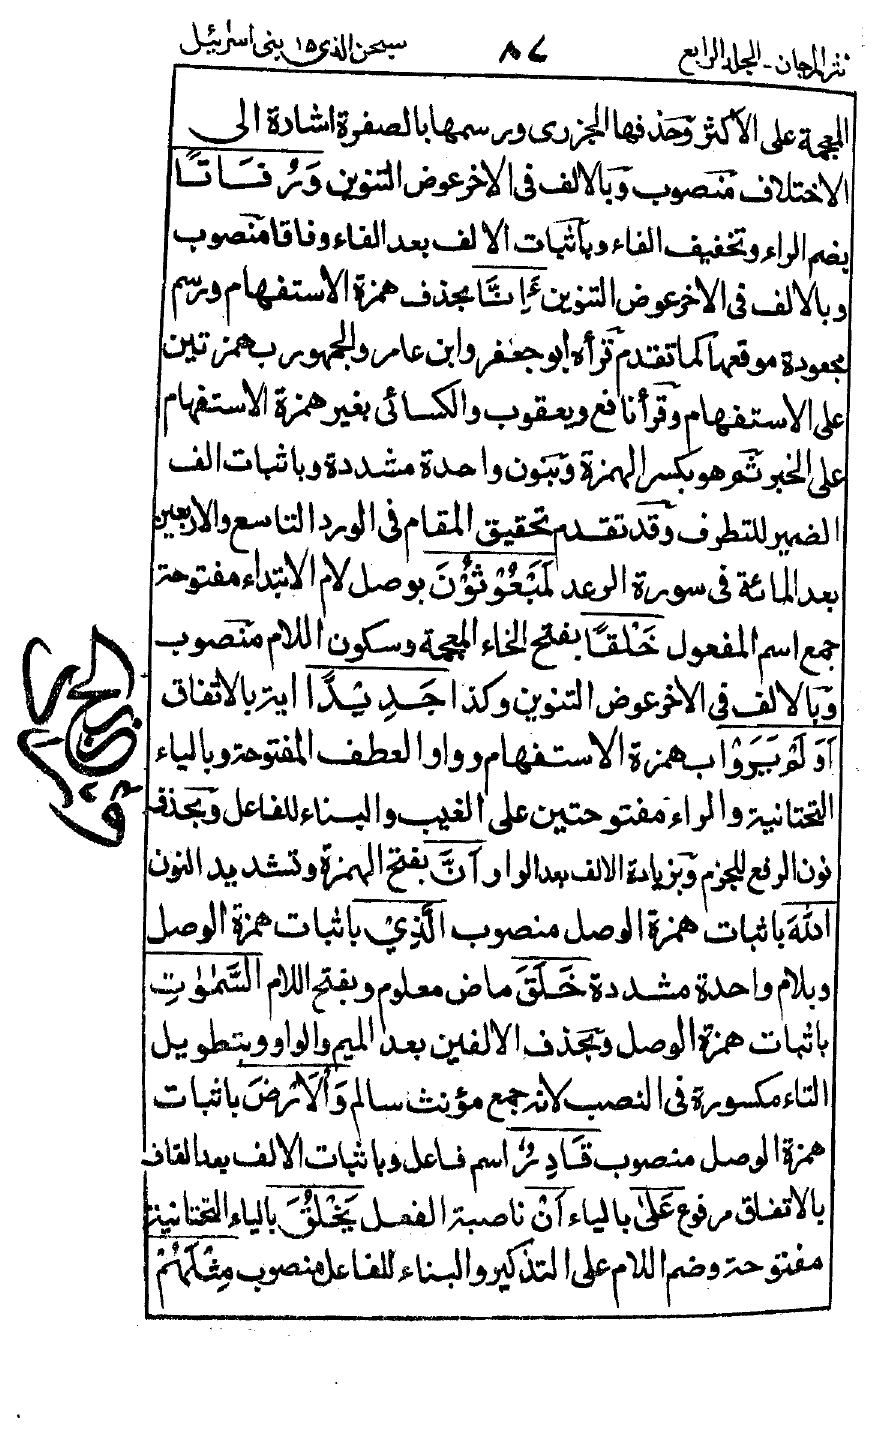 نثر المرجان - المجلد الرابع
٨٤
سبحن الذی ١٥ بنی اسرئیل
المعجمة على الاكثر وحذفها الجزرى ورسمها بالصفرة اشارة الى
الاختلاف منصوب وبالالف فى الاخر عوض التنوين وَرُفَاتًا
بضم الراء وتخفيف الفاء وباثبات الالف بعد الفاء وفاقا منصوب
وبالالف فى الاخر عوض التنوين ءَاِنَّا بحذف همزة الاستفهام ورسم
مجعودة موقعها كما تقدم قرأه ابو جعفر وابن عامر والجمهور بهمزتين
على الاستفهام وقرأ نافع ويعقوب والكسائى بغير همزة الاستفهام
على الخبر ثم هو بكسر الهمزة وبنون واحدة مشددة وباثبات الف
الضمير للتطرف وقد تقدم تحقيق المقام فى الورد التاسع والاربعين
بعد المائة فى سورة الرعد لَمَبْعُوْثُوْنَ بوصل لام الابتداء مفتوحة
جمع اسم المفعول خَلْقًا بفتح الخاء المعجمة وسكون اللام منصوب
وبالالف فى الاخر عوض التنوين وكذا جَدِيْدًا اية بالاتفاق
اَوَلَمْ يَرَوْا بهمزة الاستفهام وواو العطف المفتوحة وبالياء
التحتانية والراء مفتوحتين على الغيب والبناء للفاعل وبحذف
نون الرفع للجزم وبزيادة الالف بعد الواو اَنَّ بفتح الهمزة وتشديد النون
اللهَ باثبات همزة الوصل منصوب الَّذِيْ باثبات همزة الوصل
وبلام واحدة مشددة خَلَقَ ماض معلوم وبفتح اللام السَّمٰوٰتِ
باثبات همزة الوصل وبحذف الالفين بعد الميم والواو وبتطويل
التاء مكسورة فى النصب لانه جمع مؤنث سالم وَالْاَرْضَ باثبات
همزة الوصل منصوب قَادِرٌ اسم فاعل وباثبات الالف بعد القاف
بالاتفاق مرفوع عَلٰى بالياء اَنْ ناصبة الفعل يَخْلُقَ بالياء التحتانية
مفتوحة وضم اللام على التذكير والبناء للفاعل منصوب مِثْلَهُمْ